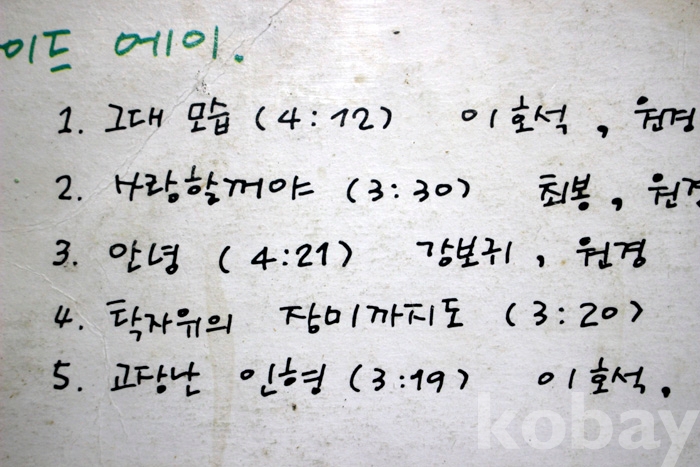 이드 에이.
1. 그대 모습 (4:12) 이호석, 원경
2. 사랑할꺼야 (3:30) 최봉, 원경
3. 안녕 (4:21) 강보귀, 원경
4. 탁자위의 장미까지도 (3:20)
5. 고장난 인형 (3:19) 이호석,
kobay